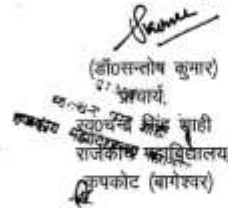 (डॉ0सन्तोष कुमार)
प्राचार्य,
स्व0चन्द्र सिंह शाही
राजकीय महाविद्यालय,
कपकोट (बागेश्वर)